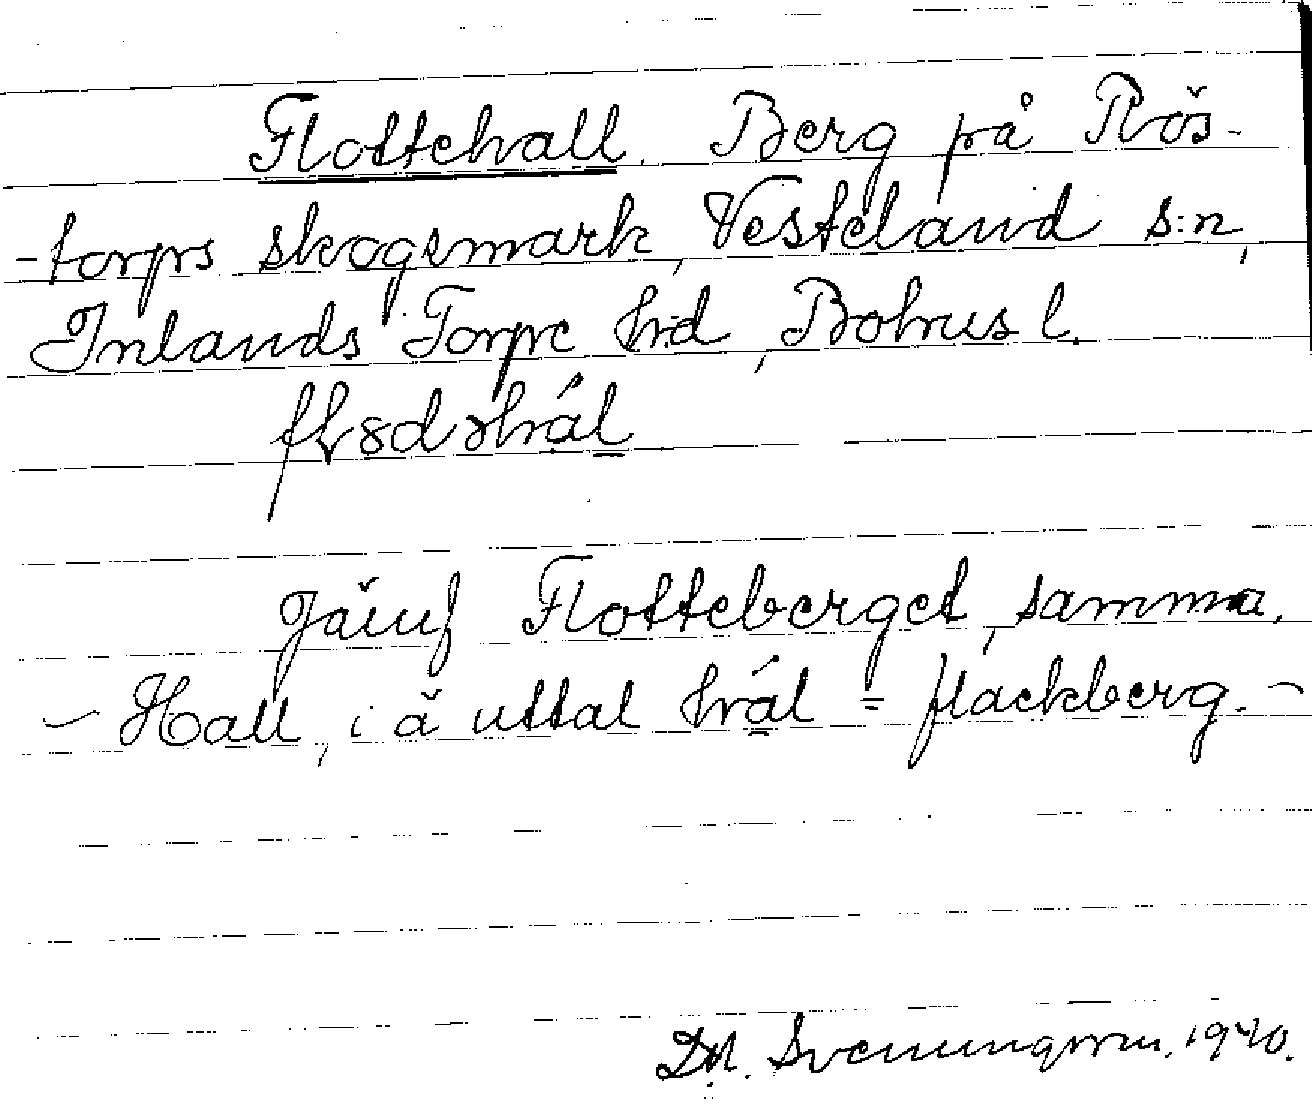 Flottehall. Berg på Rös-
-torps skogsmark, Vesteland s:n,
Inlands Torpe hd, Bohus l.
Jämf Flotteberget, samma.
- Hall, i ä uttal hál = flackberg. -
D.A. Svenungsson. 1940.